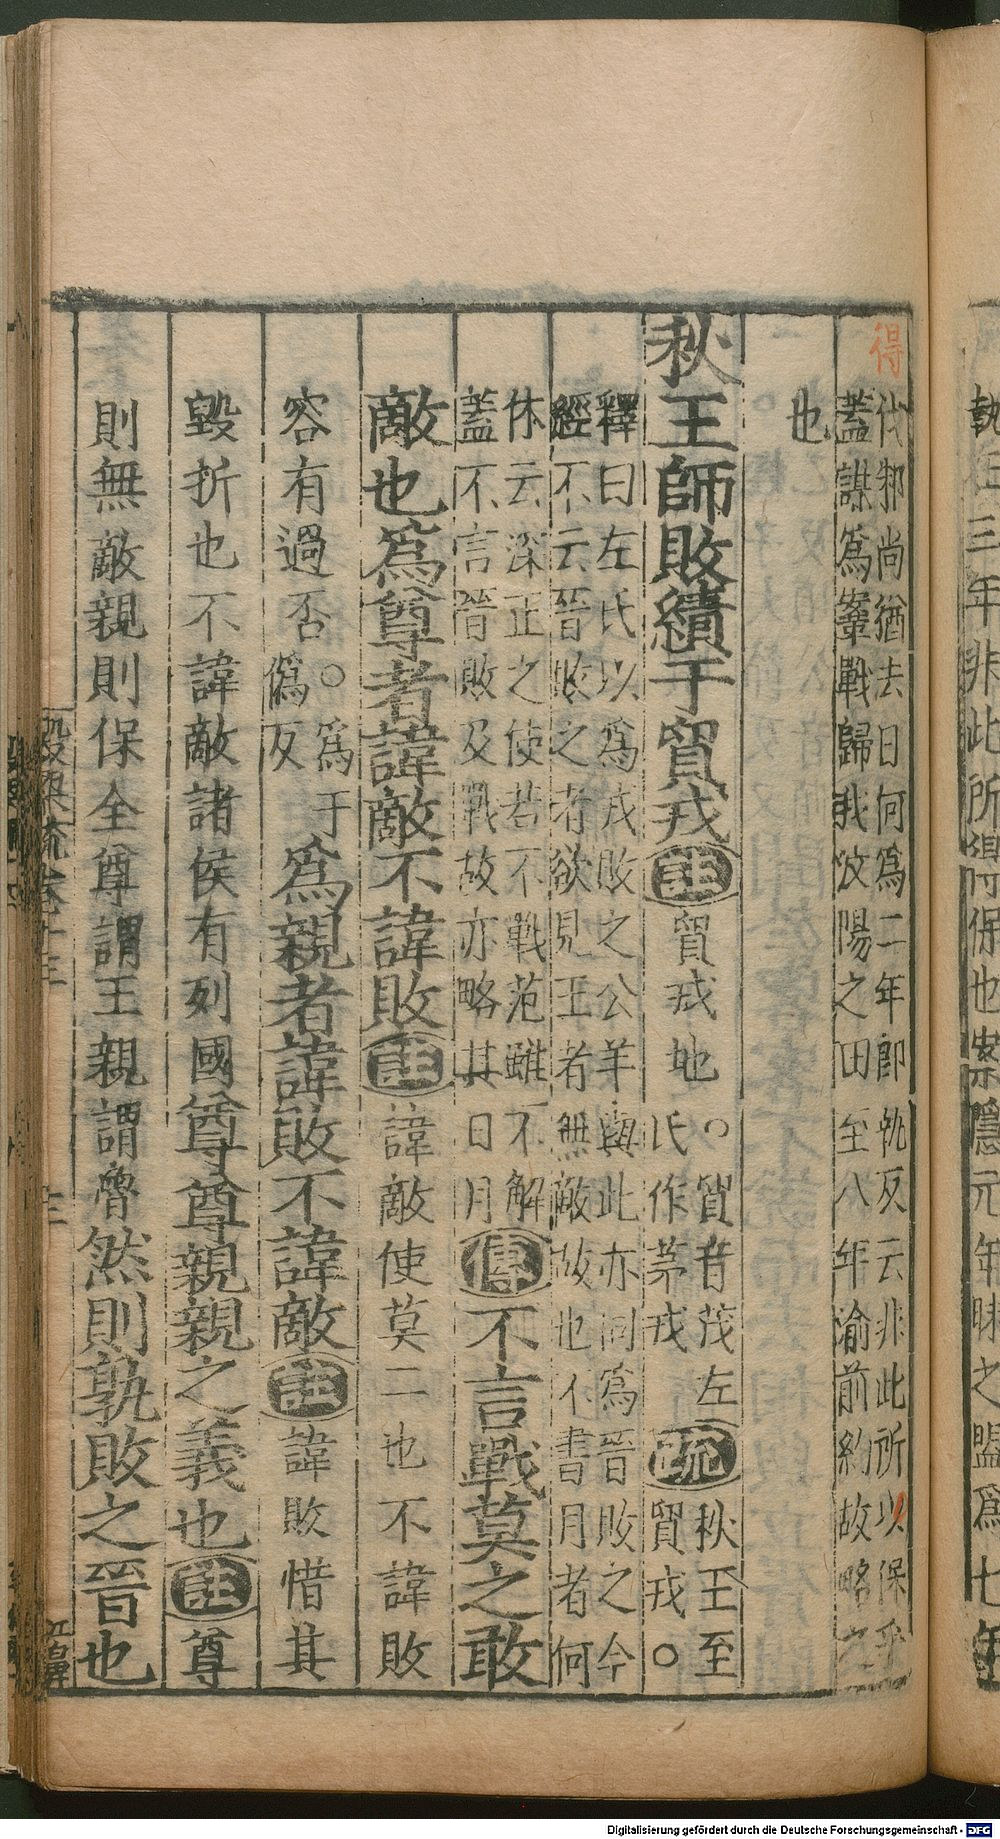 得
伐邾尚猶去日何為二年即執反云非此所以保乎
蓋謀為鞌戰歸我汶陽之田至八年渝前約故略之
也
秋王師敗績于貿戎註貿戎地○貿音茂左
氏作茅戎疏秋王至
貿戎○
釋曰左氏以為戎敗之公羊與此亦同為晉敗之今
經不云晉敗之者欲見王者無敵故也不書月者何
休云深正之使若不戰范雖不解
蓋不言晉敗及戰故亦略其日月傳不言戰莫之敢
敵也為尊者諱敵不諱敗註諱敵使莫二也不諱敗
容有過否○為于
偽反為親者諱敗不諱敵註諱敗惜其
毀折也不諱敵諸侯有列國尊尊親親之義也註尊
則無敵親則保全尊謂王親謂魯然則孰敗之晉也
Digitalisierung gefördert durch die Deutsche Forschungsgemeinschaft - DFG